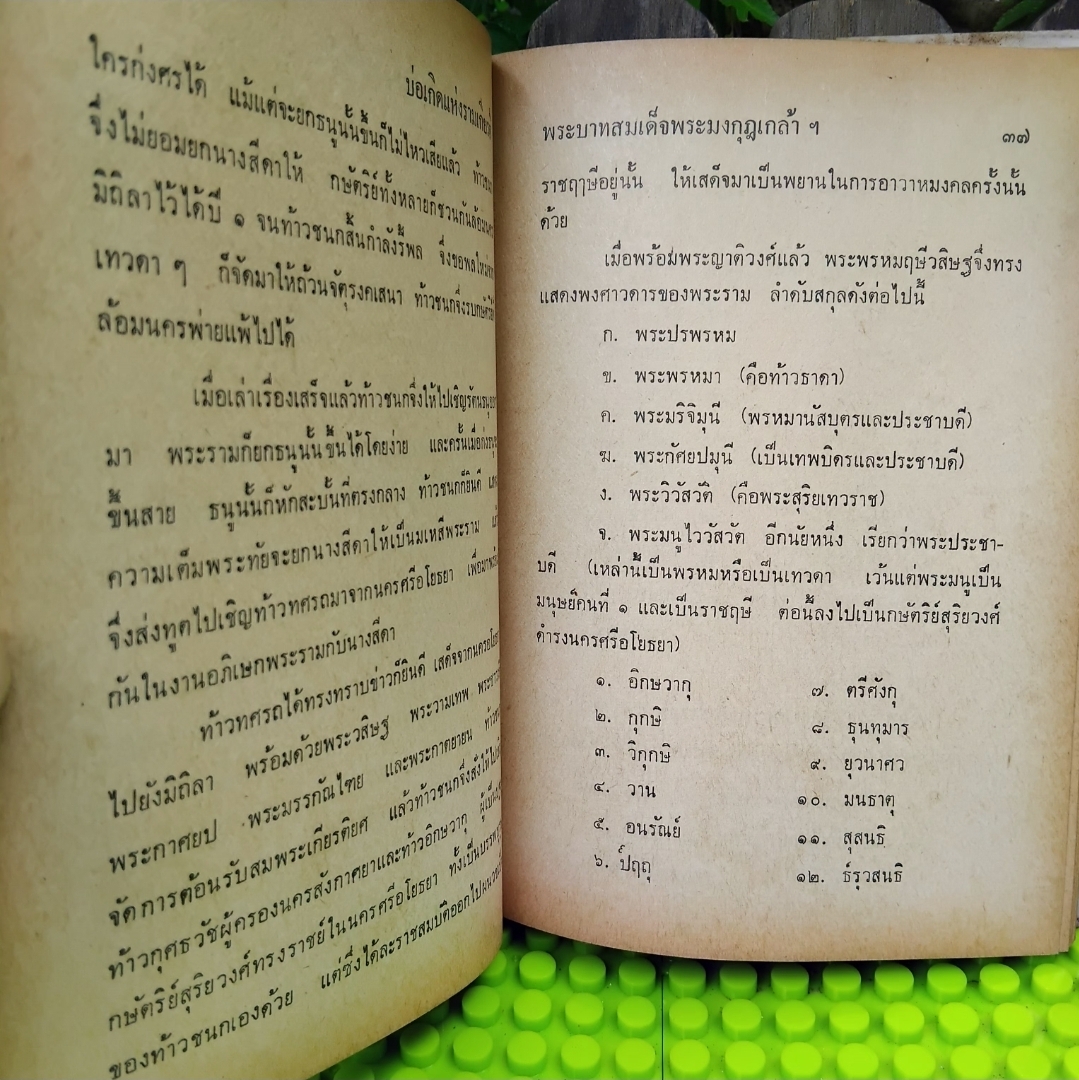 บ่อเกิดแห่งรามเกียรติ์
ใครก่งศรได้ แม้แต่จะยกธนูนั้นขึ้นก็ไม่ไหวเสียแล้ว
จึ่งไม่ยอมยกนางสีดาให้ กษัตริย์ทั้งหลายก็ชวนกันล้อม
มิถิลาไว้ได้ปี ๑ จนท้าวชนกสิ้นกำลังรี้พล จึ่งขอพลใหม่
เทวดา ๆ ก็จัดมาให้ถ้วนจัตุรงคเสนา ท้าวชนกจึ่งรบ
ล้อมนครพ่ายแพ้ไปได้
เมื่อเล่าเรื่องเสร็จแล้วท้าวชนกจึ่งให้ไปเชิญรัตนธนู
มา พระรามก็ยกธนูนั้นขึ้นได้โดยง่าย และครั้นเมื่อก่ง
ขึ้นสาย ธนูนั้นก็หักสะบั้นที่ตรงกลาง ท้าวชนกก็ยินดี
ความเต็มพระทัยจะยกนางสีดาให้เป็นมเหสีพระราม
จึ่งส่งทูตไปเชิญท้าวทศรถมาจากนครศรีอโยธยา
กันในงานอภิเษกพระรามกับนางสีดา
ท้าวทศรถได้ทรงทราบข่าวก็ยินดี เสด็จจากนคร
ไปยังมิถิลา พร้อมด้วยพระวสิษฐ พระวามเทพ
พระกาศยป พระมรรกัณไฑย และพระกาตยายน
จัดการต้อนรับสมพระเกียรติยศ แล้วท้าวชนกจึ่งสั่งให้ไป
ท้าวกุศธวัชผู้ครองนครสังกาศยาและท้าวอิกษวากุ
กษัตริย์สุริยวงศ์ทรงราชย์ในนครศรีอโยธยา
ของท้าวชนกเองด้วย แต่ซึ่งได้ละราชสมบัติออกไป
พระบาทสมเด็จพระมงกุฎเกล้า ฯ ๓๗
ราชฤๅษีอยู่นั้น ให้เสด็จมาเป็นพยานในการอาวาหมงคลครั้งนั้น
ด้วย
เมื่อพร้อมพระญาติวงศ์แล้ว พระพรหมฤษีวสิษฐจึ่งทรง
แสดงพงศาวดารของพระราม ลำดับสกุลดังต่อไปนี้
ก. พระปรพรหม
ข. พระพรหมา (คือท้าวธาดา)
ค. พระมริจิมุนี (พรหมานัสบุตรและประชาบดี)
ฆ. พระกัศยปมุนี (เป็นเทพบิดรและประชาบดี)
ง. พระวิวัสวัติ (คือพระสุริยเทวราช)
จ. พระมนูไววัสวัต อีกนัยหนึ่ง เรียกว่าพระประชา-
บดี (เหล่านี้เป็นพรหมหรือเป็นเทวดา เว้นแต่พระมนูเป็น
มนุษย์คนที่ ๑ และเป็นราชฤษี ต่อนี้ลงไปเป็นกษัตริย์สุริยวงศ์
ดำรงนครศรีอโยธยา)
๑. อิกษวากุ
๒. กุกษิ
๓. วิกุกษิ
๔. วาน
๕. อนรัณย์
๖. ปฤถุ
๗. ตรีศังกุ
๘. ธุนทุมาร
๙. ยุวนาศว
๑๐. มนธาตุ
๑๑. สุสนธิ
๑๒. ธ์รุวสนธิ